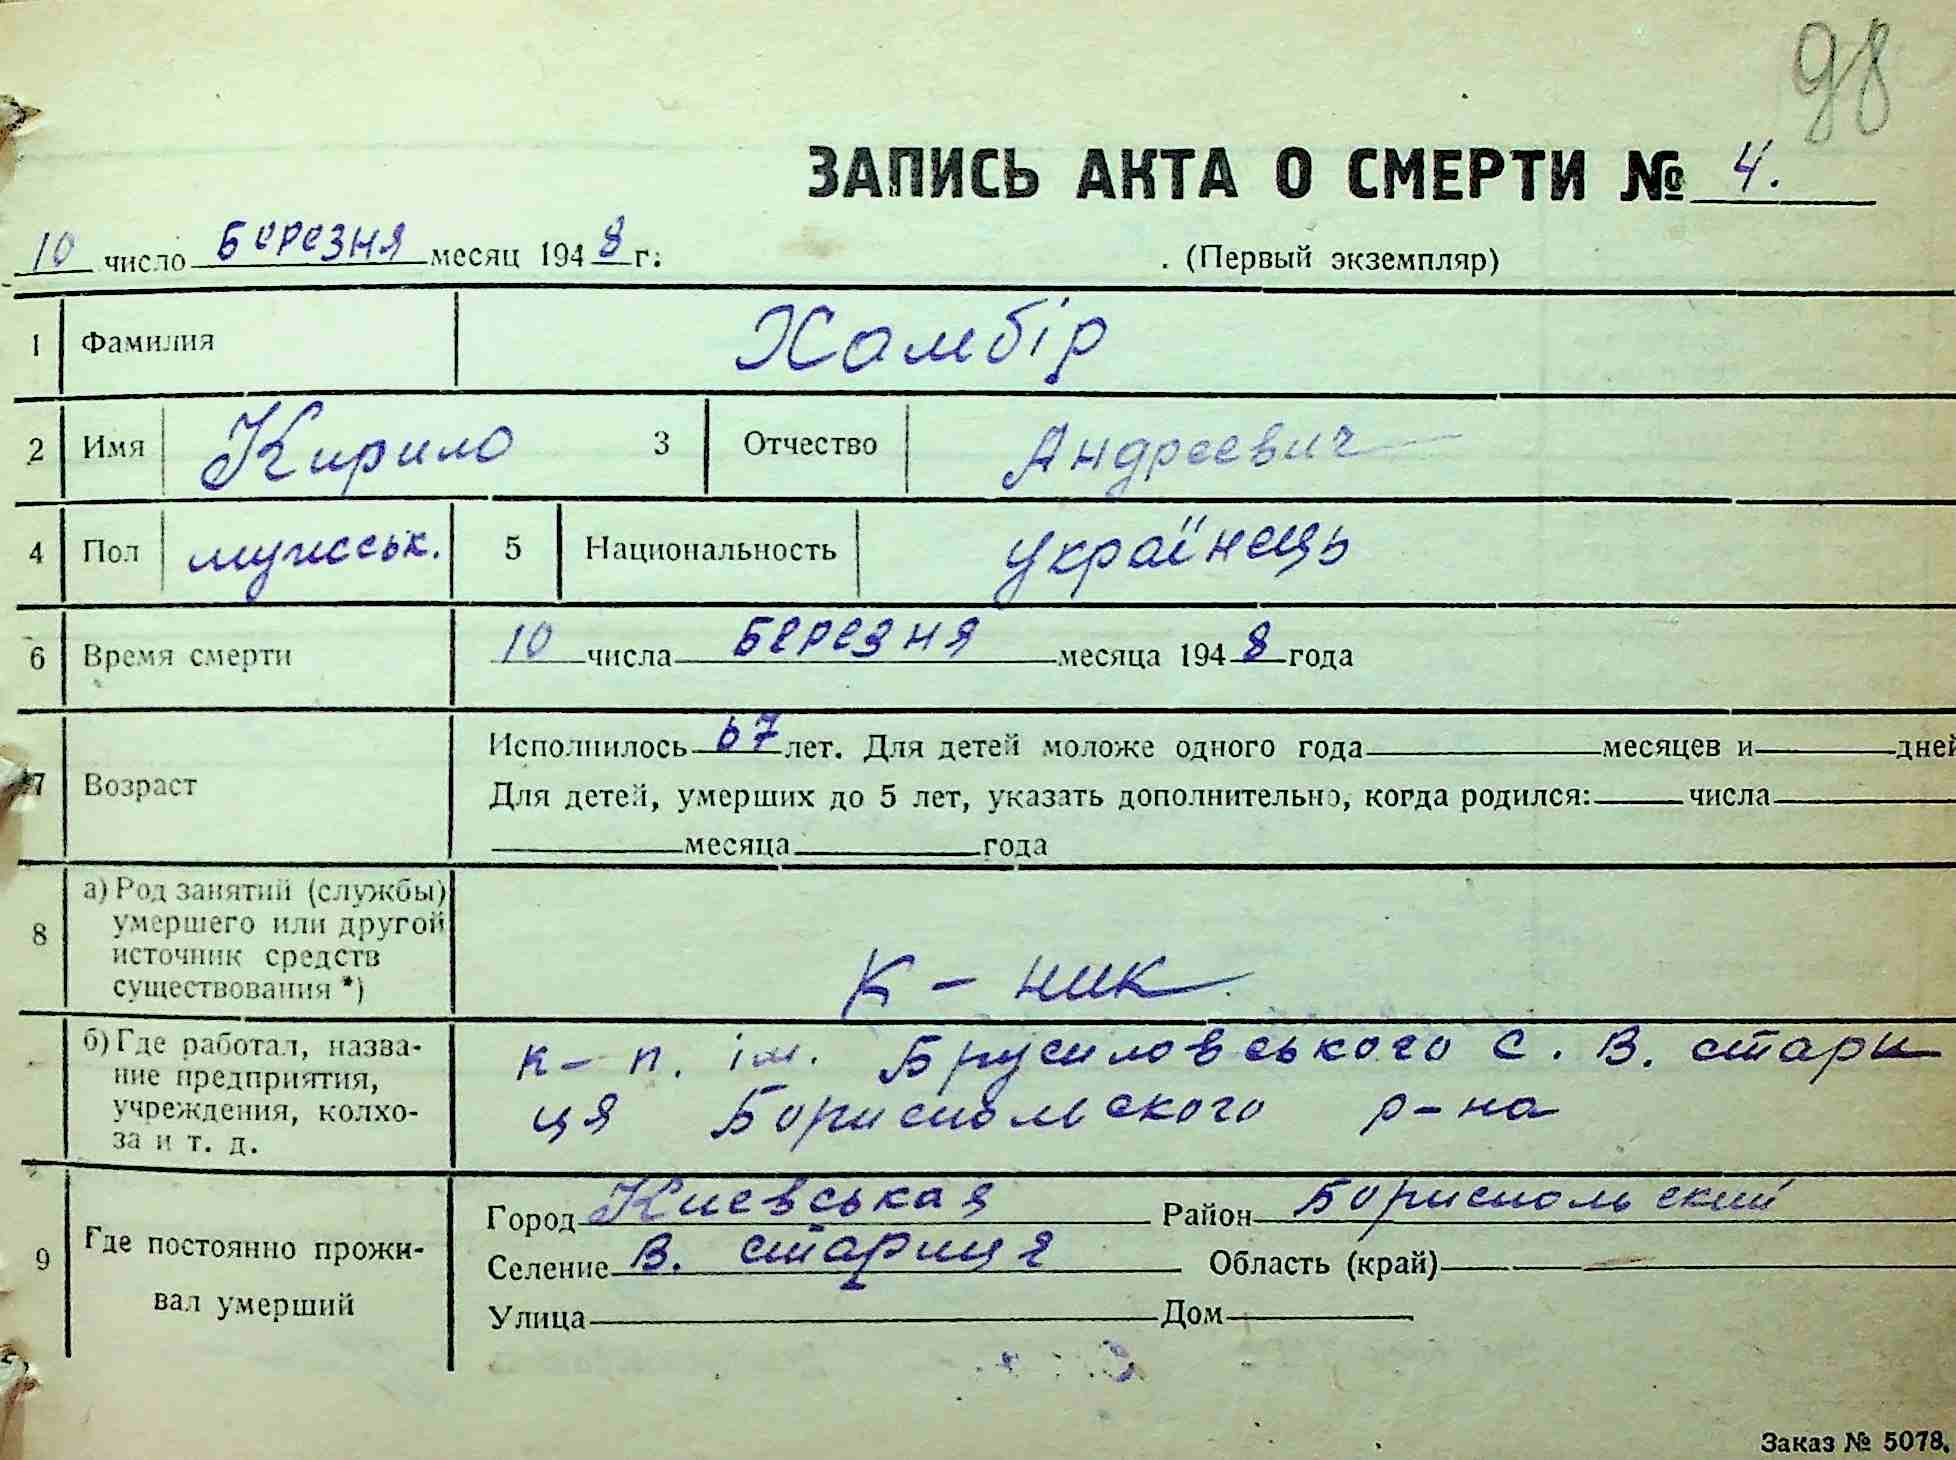 98
ЗАПИСЬ АКТА О СМЕРТИ № 4.
10 число БЕРЕЗНЯ месяц 1948 г.
(Первый экземпляр)
1 Фамилия Хамбір
2 Имя Кирило 3 Отчество Андреевич
4 Пол мужськ. 5 Национальность українець
6 Время смерти 10 числа БЕРЕЗНЯ месяца 1948 года
7 Возраст
Исполнилось 67 лет. Для детей моложе одного года месяцев и дней
Для детей, умерших до 5 лет, указать дополнительно, когда родился: числа
месяца года
8 а) Род занятий (службы)
умершего или другой
источник средств
существования *)
К - ник
б) Где работал, назва-
ние предприятия,
учреждения, колхо-
за и т. д.
к-п. ім. Брусиловського с. В. стари
ця Бориспольского р-на
9 Где постоянно прожи-
вал умерший
Город Киевськая Район Бориспольский
Селение В. стариця Область (край)
Улица Дом
Заказ № 5078.